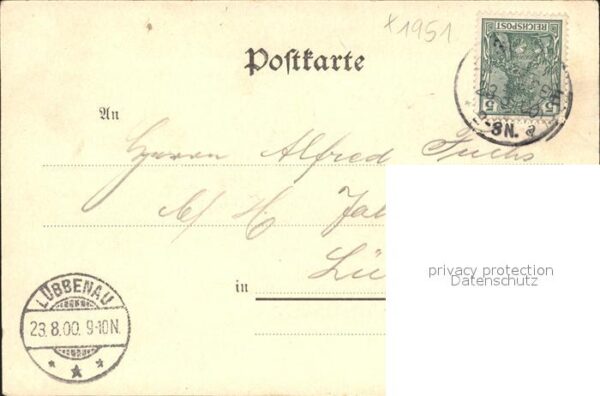 × 1951.
REICHSPOST
5 5
Postkarte
8N. a
An
Herrn Alfred Fuchs
b/ H
in Lü
privacy protection
Datenschutz
LÜBBENAU
23.8.00. 9-10N.